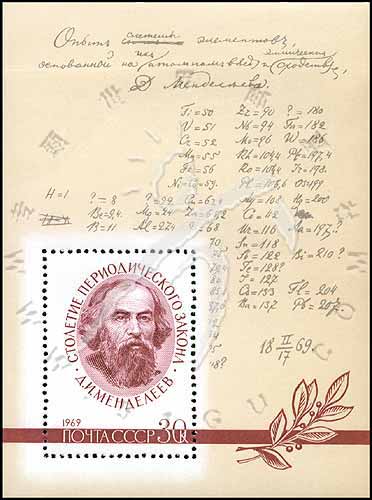 Опытъ системы элементовъ,
основанной на ихъ атомномъ вѣсѣ и химическомъ сходствѣ,
Д. Менделѣева
Ti=50 Zr=90 ?=180
V=51 Nb=94 Ta=182
Cr=52 Mo=96 W=186
Mn=55 Rh=104,4 Pt=197,4
Fe=56 Ru=104,4 Ir=198
Ni=Co=59 Pl=106,6 Os=199
H=1 ?=8 ?=22 Cu=63,4 Ag=108 Hg=200
Be=9,4 Mg=24 Zn=65,2 Cd=112
B=11 Al=27,4 ?=68 Ur=116 Au=197?
70 Sn=118
75 Sb=122 Bi=210?
Te=128?
I=127
Cs=133 Tl=204
Ba=137 Pb=207
18 II/17 69
СТОЛЕТИЕ ПЕРИОДИЧЕСКОГО ЗАКОНА
Д.И.МЕНДЕЛЕЕВ
1969
ПОЧТА СССР 30К